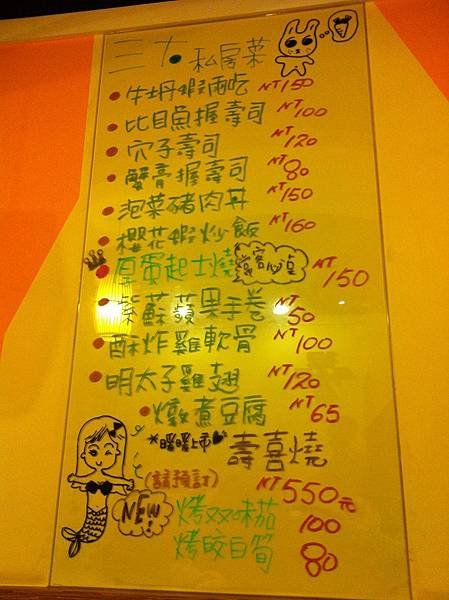 三大私房菜
牛丼蝦兩吃 NT150
比目魚握壽司 NT100
穴子壽司 NT120
蟹膏握壽司 NT80
泡菜豬肉丼 NT150
櫻花蝦炒飯 NT160
厚蛋起士燒 NT150
紫蘇蘋果手卷 NT50
酥炸雞軟骨 NT100
明太子雞翅 NT120
燉煮豆腐 NT65
*暖暖上市 壽喜燒
(請預訂) NT550元
NEW! 烤双味茄 100
烤皎白筍 80